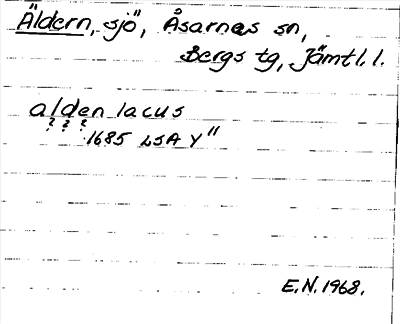 Äldern, sjö, Åsarnes sn,
Bergs tg, Jämtl. l.
alden lacus
? ? ?
1685 LSA Y"
E.N. 1968.